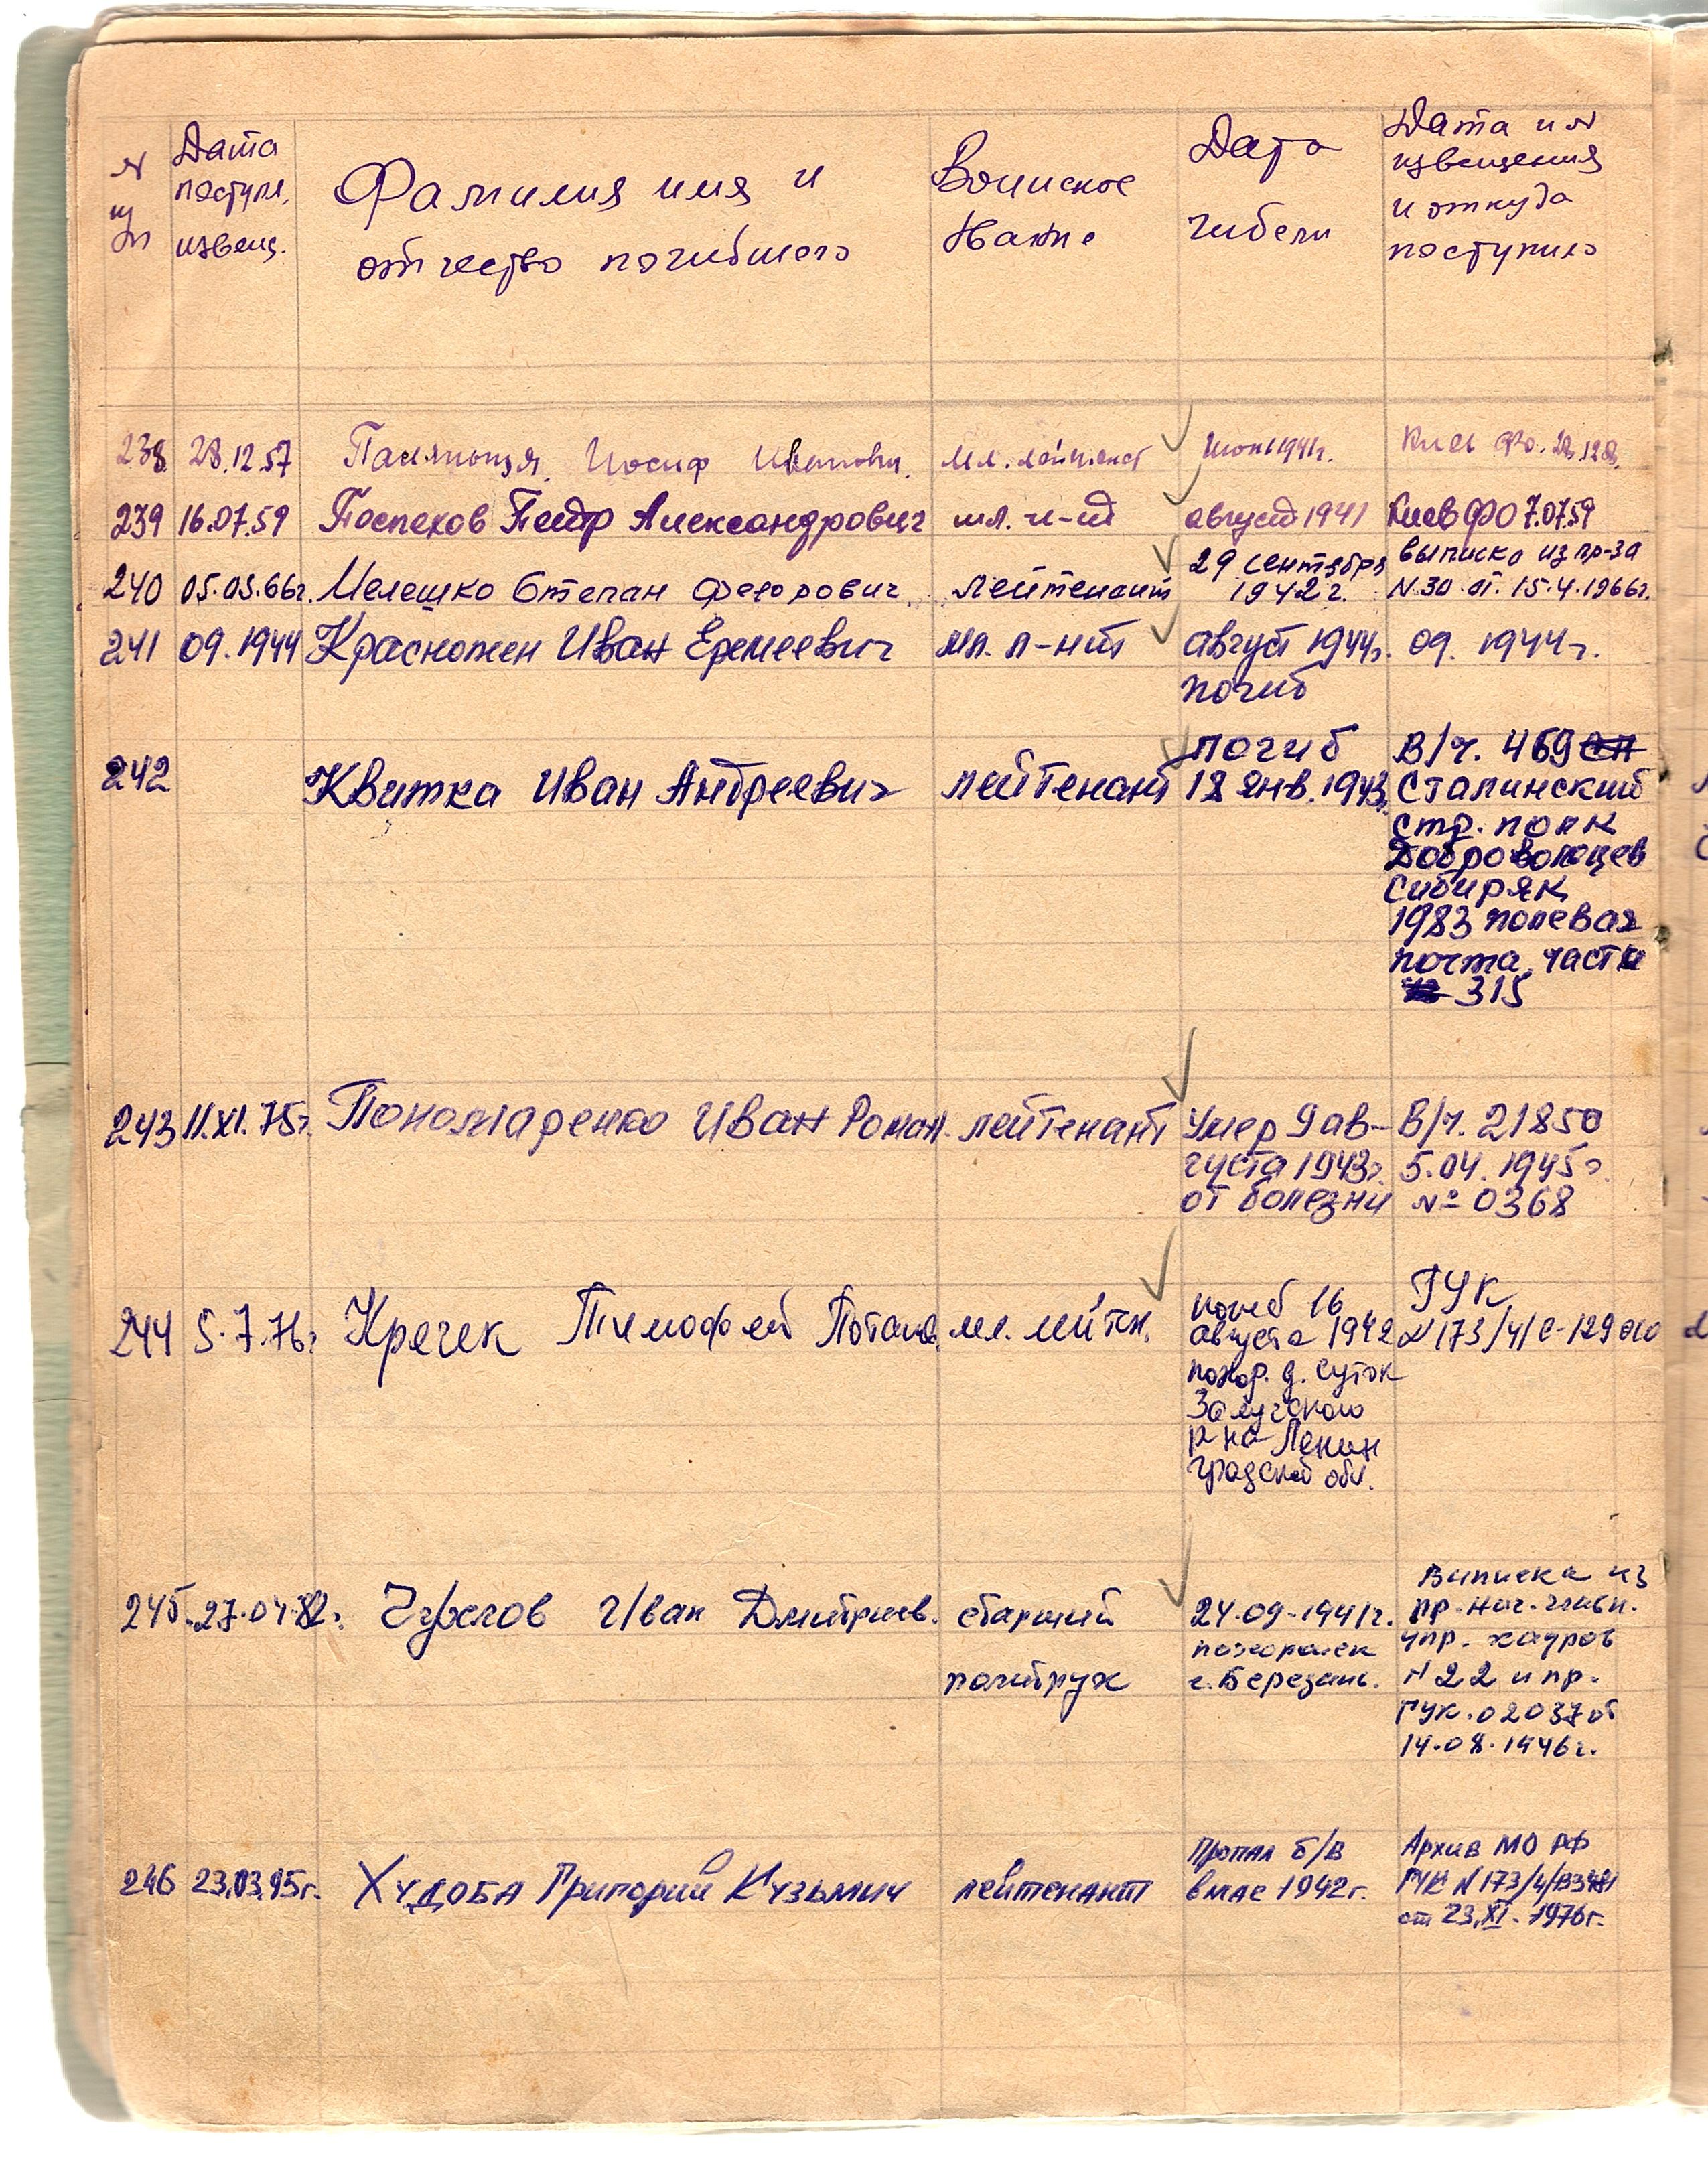 N
п/п
Дата
поступл.
извещ.
Фамилия имя и
отчество погибшего
Воинское
звание
Дата
гибели
Дата и N
извещения
и откуда
поступило
238 28.12.57 Иосиф Иванович мл. лейтенант Июнь 1941г.
239 16.07.59 Поспехов Петр Александрович мл. л-т август 1941 Киев ФО 7.07.59
240 05.05.66г. Мелешко Степан Федорович лейтенант 29 сентября
1942г.
выписка из пр-за
N 30 от 15.4.1966г.
241 09.1944 Красножен Иван Еремеевич мл. л-нт август 1944г.
погиб
09. 1944г.
242 Квитка Иван Андреевич лейтенант погиб
18 янв. 1943
В/ч. 469 сп
Сталинский
стр. полк
Добровольцев
Сибиряк
1983 полевая
почта, части
315
243 11.XI.75г. Пономаренко Иван Роман. лейтенант Умер 9 ав-
густа 1943г.
от болезни
В/ч. 21850
5.04.1945г.
№ 0368
244 5.7.76г Кречек Тимофей Потапов. мл. лейтен. погиб 16
августа 1942
похор. д. Суток
Залучского
р на Ленин
градской обл.
ГУК
N 173/4/С-129010
245. 27.04.82г. Иван Дмитриев. старший
политрук
24.09.1941г.
похоронен
с. Березань.
Выписка из
пр. нач. главн.
упр. кадров
N 22 и пр.
ГУК. 02037 от
14.08.1946г.
246 23.03.95г. Худоба Григорий Кузьмич лейтенант Пропал б/в
в мае 1942г.
Архив МО РФ
ГУК N 173/4/
от 23.XI.1976г.